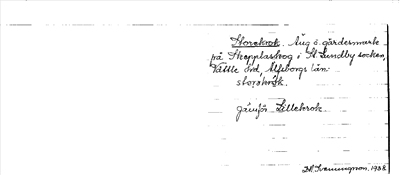 Storekrok. Äng o. gärdesmark
på Skepplaskog i St. Lundby socken,
Vättle hd, Älfsborgs län.
storəkrok.
jämför Lillekrok
1938.